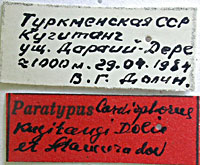 Туркменская ССР
Кугитанг
ущ. Дарай-Дере
≈1000м. 29.04.1984
В.Г. Долин.
Paratypus Cardiophorus
kugitangi Dolin
et Atamuradov